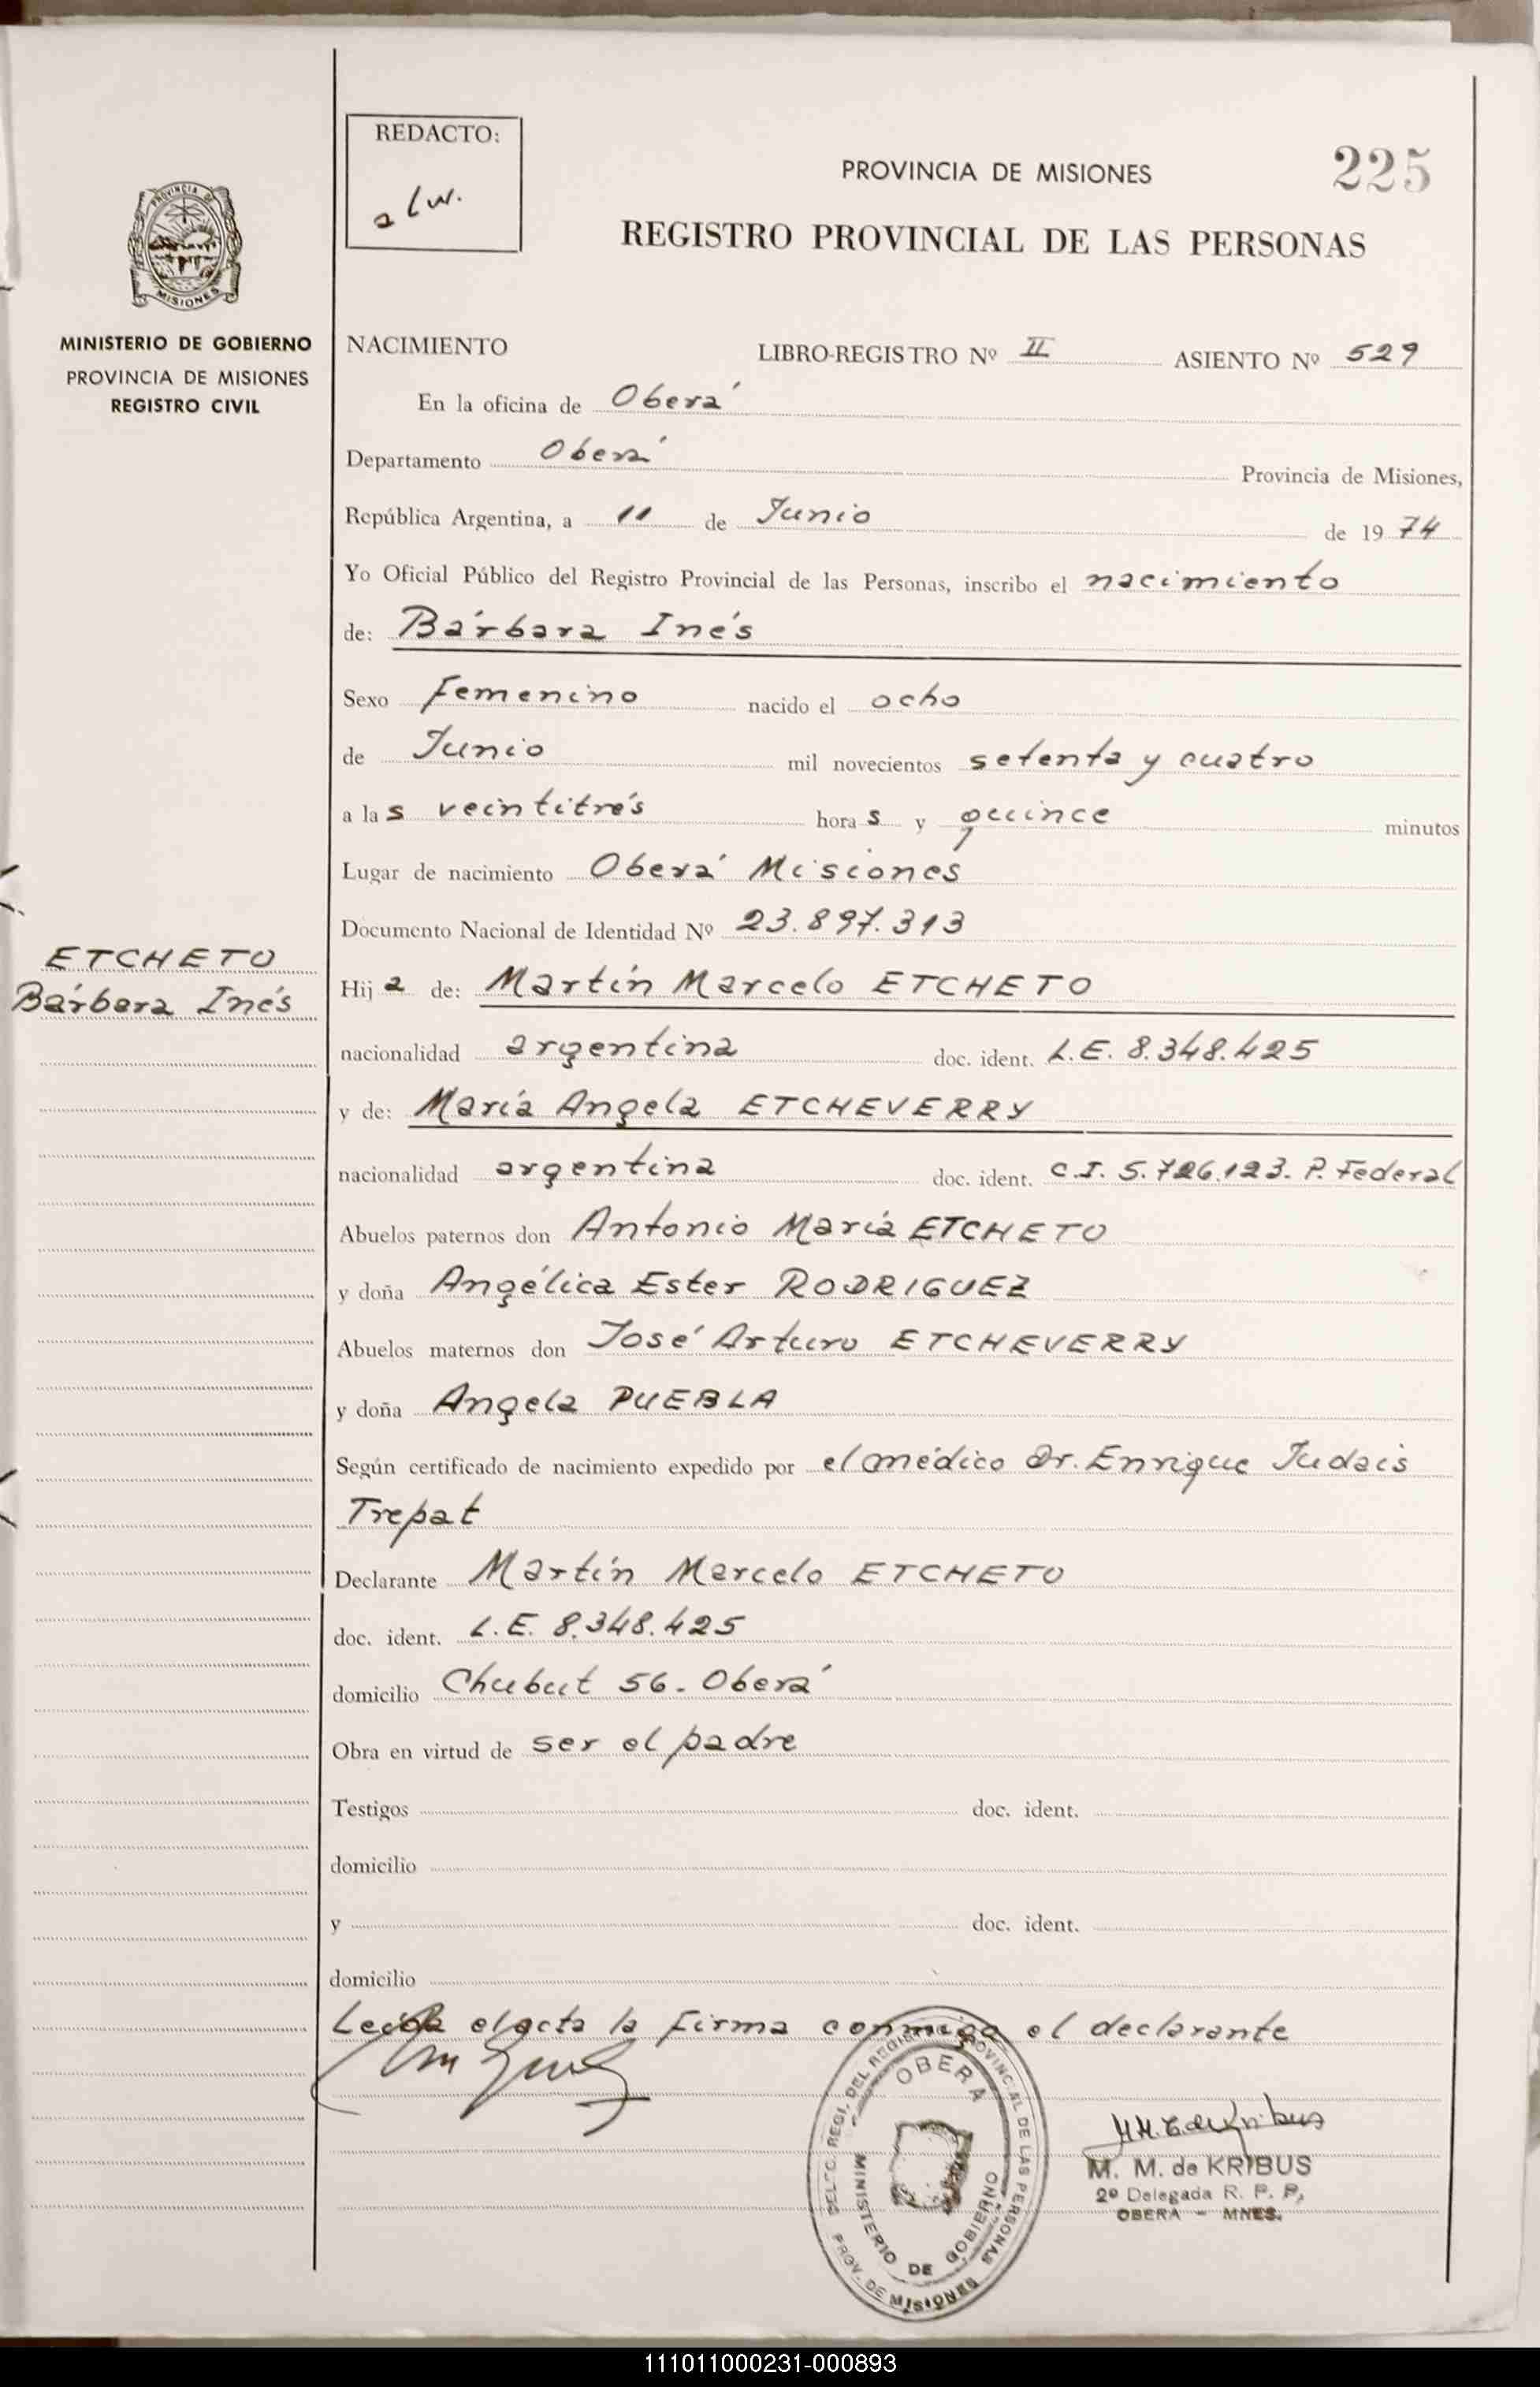 REDACTO:
PROVINCIA DE MISIONES
225
REGISTRO PROVINCIAL DE LAS PERSONAS
PROVINCIA DE
MISIONES
MINISTERIO DE GOBIERNO
PROVINCIA DE MISIONES
REGISTRO CIVIL
NACIMIENTO LIBRO-REGISTRO Nº II ASIENTO Nº 529
En la oficina de Oberá
Departamento Oberá Provincia de Misiones,
República Argentina, a 11 de Junio de 1974
Yo Oficial Público del Registro Provincial de las Personas, inscribo el nacimiento
de: Bárbara Inés
Sexo Femenino nacido el ocho
de Junio mil novecientos setenta y cuatro
a las veintitrés horas y quince minutos
Lugar de nacimiento Oberá Misiones
Documento Nacional de Identidad Nº 23.897.313
ETCHETO
Bárbara Inés
Hija de: Martín Marcelo ETCHETO
nacionalidad argentina doc. ident. L.E. 8.348.425
y de: María Angela ETCHEVERRY
nacionalidad argentina doc. ident. C.I. 5.726.123. P. Federal
Abuelos paternos don Antonio María ETCHETO
y doña Angélica Ester RODRIGUEZ
Abuelos maternos don José Arturo ETCHEVERRY
y doña Angela PUEBLA
Según certificado de nacimiento expedido por el médico Dr. Enrique Judais
Trepat
Declarante Martín Marcelo ETCHETO
doc. ident. L.E. 8.348.425
domicilio Chubut 56. Oberá
Obra en virtud de ser el padre
Testigos doc. ident.
domicilio
y doc. ident.
domicilio
Leída el acta la firma conmigo el declarante
DELEG. REGI. DEL REGISTRO PROVINCIAL DE LAS PERSONAS
OBERA
MINISTERIO DE GOBIERNO
PROV. DE MISIONES
M. M. de KRIBUS
2º Delegada R. P. P.
OBERA - MNES.
111011000231-000893